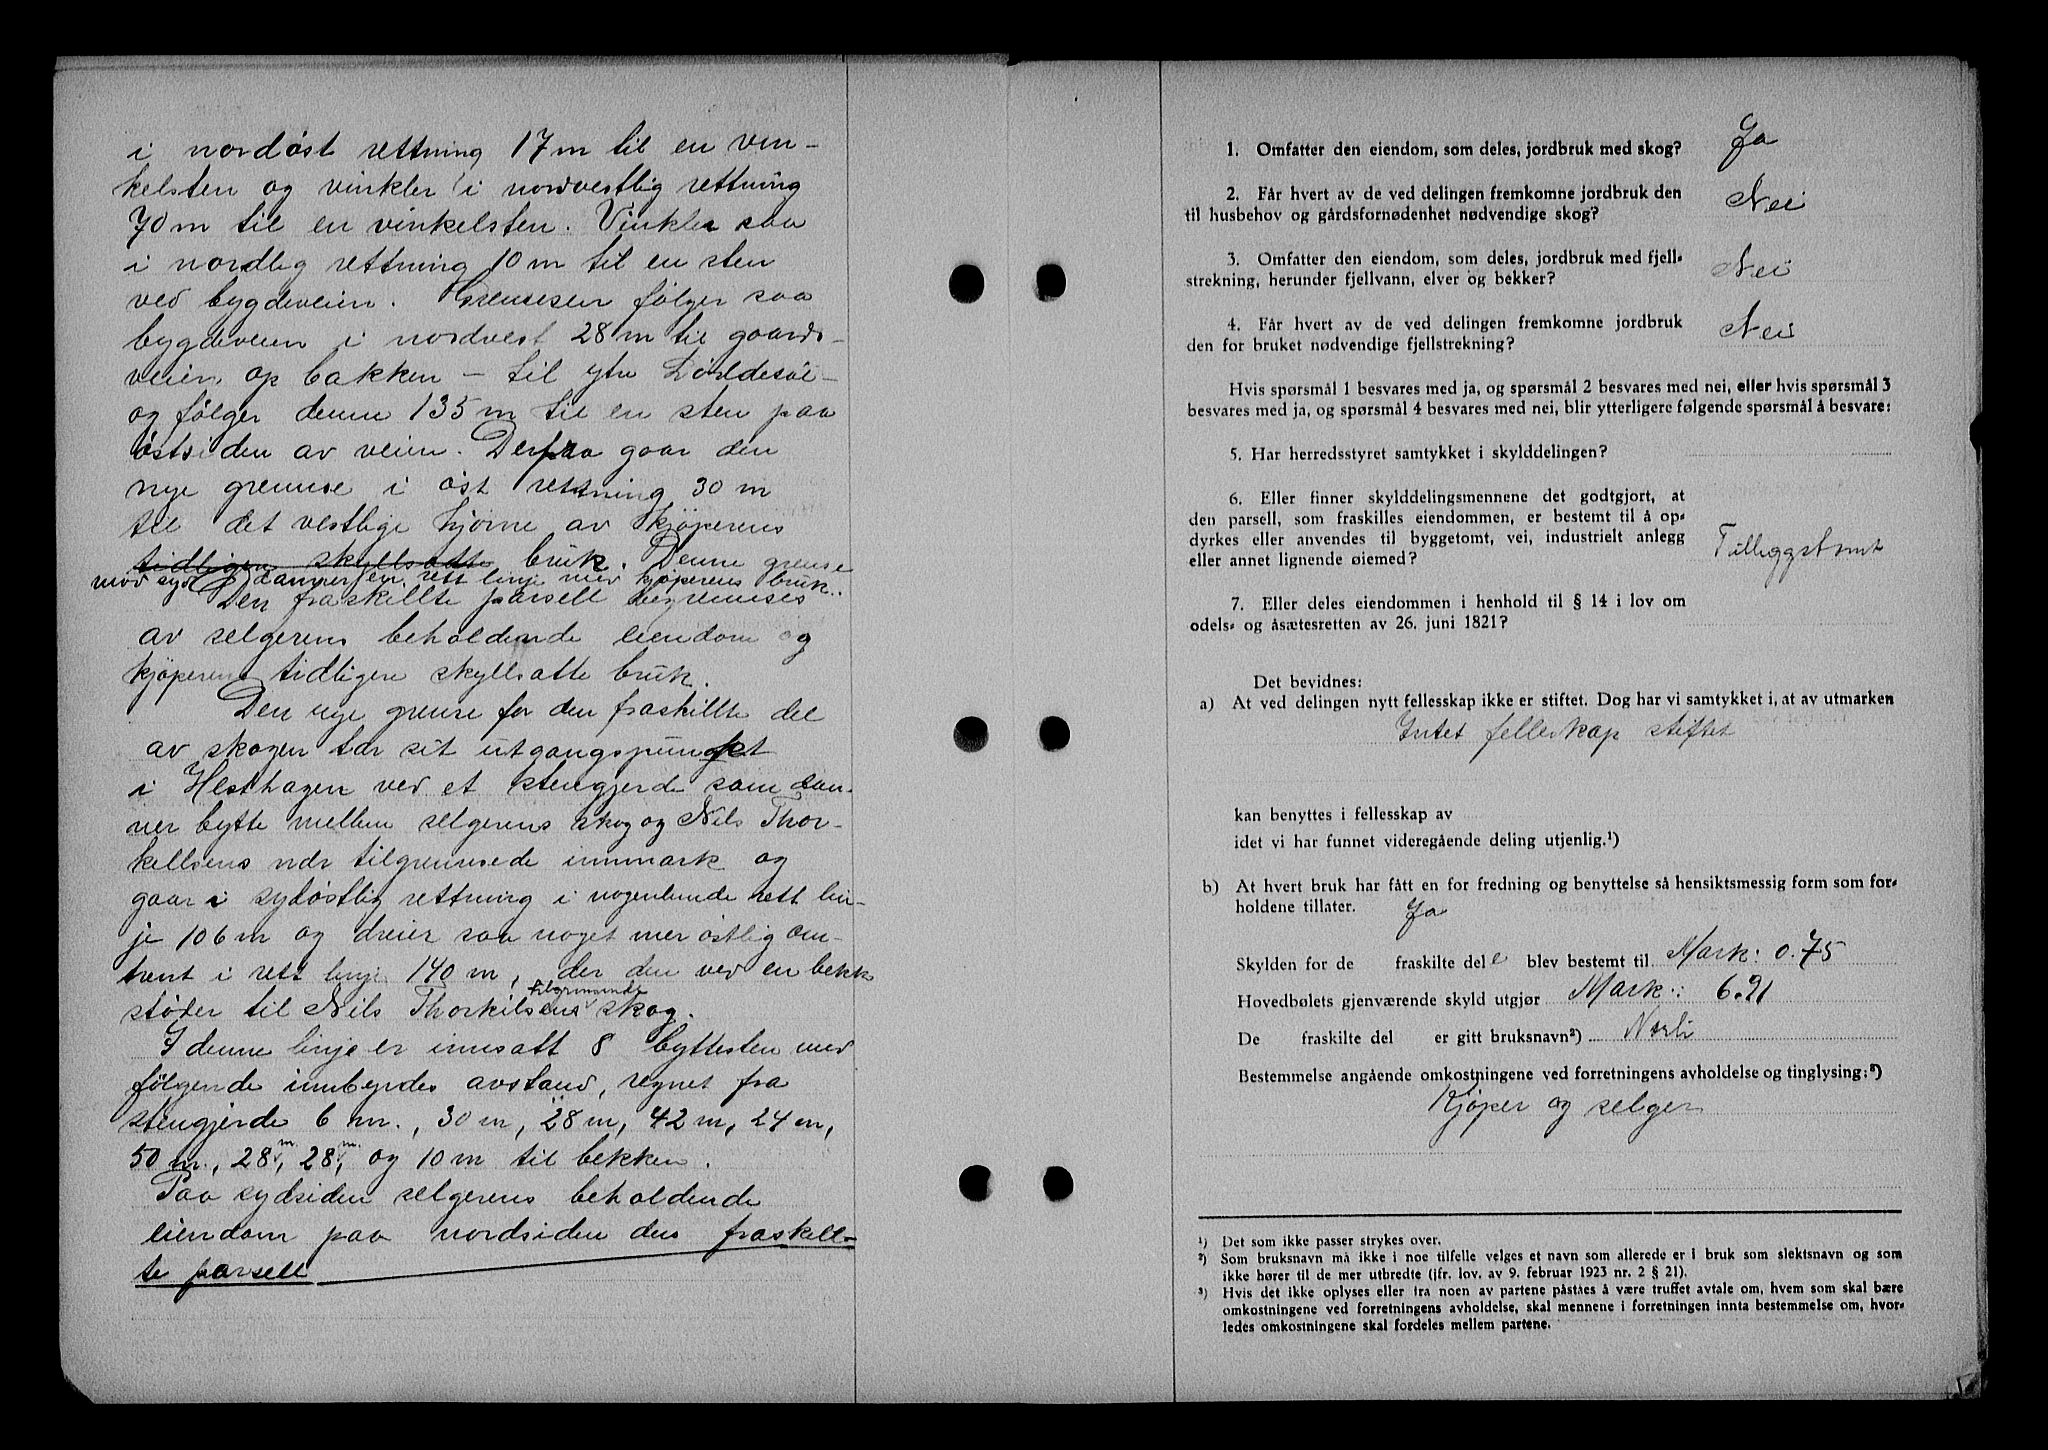 i nordøst rettning 17 m til en vin-
kelsten og vinkler i nordvestlig rettning
70 m til en vinkelsten. Vinkler saa
i nordlig rettning 10 m til en sten
ved bygdeveien. Grensesen følger saa
bygdeveien i nordvest 28 m til gaards-
veien op bakken – til ytre
og følger denne 135 m til en sten paa
østsiden av veien. Derfra gaar den
nye grennse i øst rettning 30 m
til det vestlige hjørne av kjøperens
tidligere skyllsatte bruk. Denne grense
mot syd danner en rett linje med kjøperens bruk.
Den fraskillte parsell begrennses
av selgerens beholdende eiendom og
kjøperens tidligere skyllsatte bruk.
Den nye grense for den fraskillte del
av skogen tar sit utgangspunkt
i Hesthagen ved et stengjerde som dan-
ner bytte mellem selgerens skog og Nils Thor-
kellsens ndr tilgrennsede innmark og
gaar i sydøstlig rettning i nogenlunde rett lin-
je 106 m og dreier saa noget mer østlig om-
trent i rett linje 140 m, der den ved en bekk
støder til Nils Thorkilsens tilgrensende skog.
I denne linje er innsatt 8 byttesten med
følgende innbyrdes avstand, regnet fra
stengjerde 6 m., 30 m, 28 m, 42 m, 24 m,
50 m., 28 m, 28 m, og 10 m til bekken.
Paa sydsiden selgerens beholdende
eiendom paa nordsiden den fraskill-
te parsell
1. Omfatter den eiendom, som deles, jordbruk med skog? Ja
2. Får hvert av de ved delingen fremkomne jordbruk den
til husbehov og gårdsfornødenhet nødvendige skog? Nei
3. Omfatter den eiendom, som deles, jordbruk med fjell-
strekning, herunder fjellvann, elver og bekker? Nei
4. Får hvert av de ved delingen fremkomne jordbruk
den for bruket nødvendige fjellstrekning? Nei
Hvis spørsmål 1 besvares med ja, og spørsmål 2 besvares med nei, eller hvis spørsmål 3
besvares med ja, og spørsmål 4 besvares med nei, blir ytterligere følgende spørsmål å besvare:
5. Har herredsstyret samtykket i skylddelingen?
6. Eller finner skylddelingsmennene det godtgjort, at
den parsell, som fraskilles eiendommen, er bestemt til å op-
dyrkes eller anvendes til byggetomt, vei, industrielt anlegg
eller annet lignende øiemed? Tilleggstomt
7. Eller deles eiendommen i henhold til § 14 i lov om
odels- og åsætesretten av 26. juni 1821?
Det bevidnes:
a) At ved delingen nytt fellesskap ikke er stiftet. Dog har vi samtykket i, at av utmarken
Intet felleskap stiftet
kan benyttes i fellesskap av
idet vi har funnet videregående deling utjenlig.¹)
b) At hvert bruk har fått en for fredning og benyttelse så hensiktsmessig form som for-
holdene tillater. Ja
Skylden for de fraskilte dele blev bestemt til Mark: 0.75
Hovedbølets gjenværende skyld utgjør Mark: 6.91
De fraskilte del er gitt bruksnavn²) Norli
Bestemmelse angående omkostningene ved forretningens avholdelse og tinglysing:³)
Kjøper og selger
¹) Det som ikke passer strykes over.
²) Som bruksnavn må ikke i noe tilfelle velges et navn som allerede er i bruk som slektsnavn og som
ikke hører til de mer utbredte (jfr. lov. av 9. februar 1923 nr. 2 § 21).
³) Hvis det ikke oplyses eller fra noen av partene påståes å være truffet avtale om, hvem som skal bære
omkostningene ved forretningens avholdelse, skal mennene i forretningen innta bestemmelse om, hvor-
ledes omkostningene skal fordeles mellem partene.